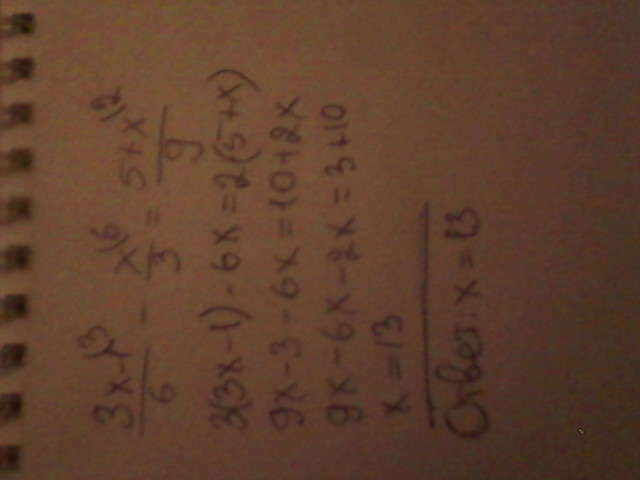 (3x-1)/6 \3 - x/3 \6 = (5+x)/9 \2
3(3x-1)-6x=2(5+x)
9x-3-6x=10+2x
9x-6x-2x=3+10
x=13
Ответ: x=13